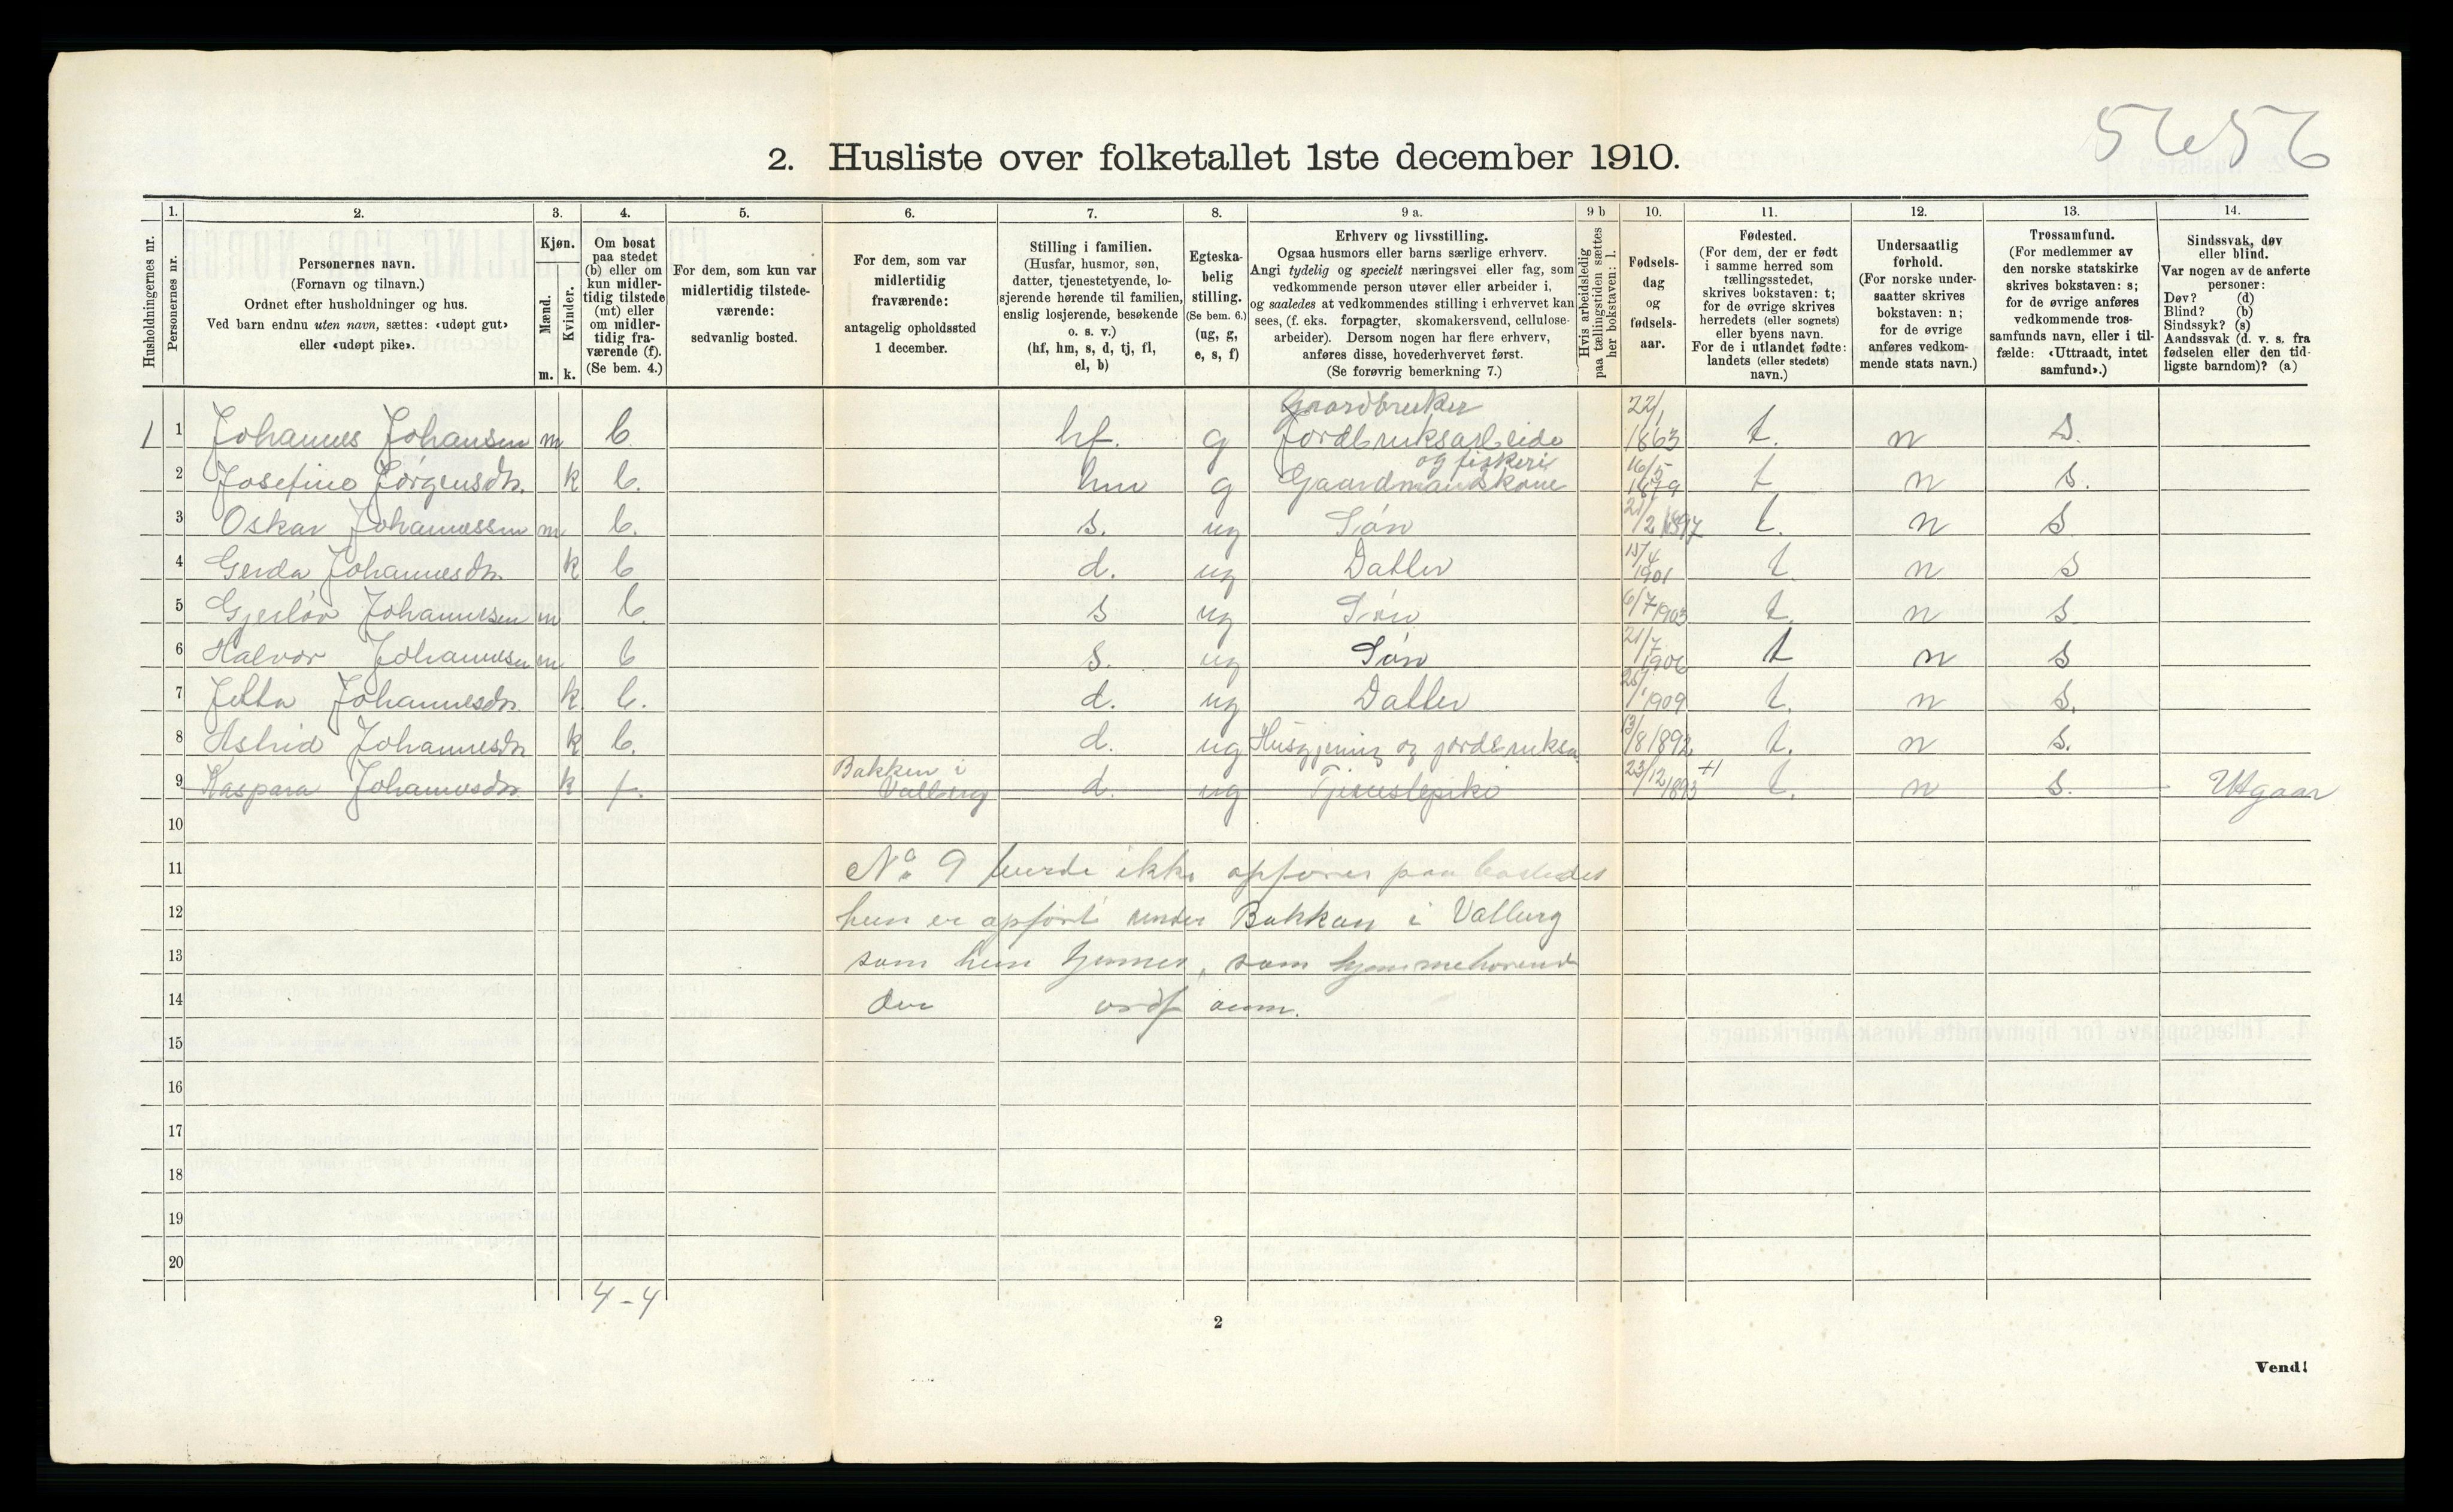 5656
2. Husliste over folketallet 1ste december 1910.
Husholdningernes nr.
1.
Personernes nr.
2.
Personernes navn.
(Fornavn og tilnavn.)
Ordnet efter husholdninger og hus.
Ved barn endnu uten navn, sættes: «udøpt gut»
eller «udøpt pike».
3.
Kjøn.
Mænd.
Kvinder.
m. k.
4.
Om bosat
paa stedet
(b) eller om
kun midler-
tidig tilstede
(mt) eller
om midler-
tidig fra-
værende (f).
(Se bem. 4.)
5.
For dem, som kun var
midlertidig tilstede-
værende:
sedvanlig bosted.
6.
For dem, som var
midlertidig
fraværende:
antagelig opholdssted
1 december.
7.
Stilling i familien.
(Husfar, husmor, søn,
datter, tjenestetyende, lo-
sjerende hørende til familien,
enslig losjerende, besøkende
o. s. v.)
(hf, hm, s, d, tj, fl,
el, b)
8.
Egteska-
belig
stilling.
(Se bem. 6.)
(ug, g,
e, s, f)
9 a.
Erhverv og livsstilling.
Ogsaa husmors eller barns særlige erhverv.
Angi tydelig og specielt næringsvei eller fag, som
vedkommende person utøver eller arbeider i,
og saaledes at vedkommendes stilling i erhvervet kan
sees, (f. eks. forpagter, skomakersvend, cellulose-
arbeider). Dersom nogen har flere erhverv,
anføres disse, hovederhvervet først.
(Se forøvrig bemerkning 7.)
9 b
Hvis arbeidsledig
paa tællingstiden sættes
her bokstaven: l.
10.
Fødsels-
dag
og
fødsels-
aar.
11.
Fødested.
(For dem, der er født
i samme herred som
tællingsstedet,
skrives bokstaven: t;
for de øvrige skrives
herredets (eller sognets)
eller byens navn.
For de i utlandet fødte:
landets (eller stedets)
navn.)
12.
Undersaatlig
forhold.
(For norske under-
saatter skrives
bokstaven: n;
for de øvrige
anføres vedkom-
mende stats navn.)
13.
Trossamfund.
(For medlemmer av
den norske statskirke
skrives bokstaven: s;
for de øvrige anføres
vedkommende tros-
samfunds navn, eller i til-
fælde: «Uttraadt, intet
samfund».)
14.
Sindssvak, døv
eller blind.
Var nogen av de anførte
personer:
Døv? (d)
Blind? (b)
Sindssyk? (s)
Aandssvak (d. v. s. fra
fødselen eller den tid-
ligste barndom)? (a)
Gaardbruker
1 1 Johannes Johansen m b hf. g Jordbruksarbeide 22/1 1863 t. n s.
og fiskeri
2 Josefine Jørgensdtr. k b. hm g Gaardmandskone 16/5 1879 t n s.
3 Oskar Johannessen m b. s. ug Søn 21/2 1897 t. n s
4 Gerda Johannesdtr. k b d. ug Datter 15/4 1901 t. n s
5 Gjerløv Johannesen m b. s ug Søn 6/7 1903 t. n s
6 Halvor Johannesen m b s. ug Søn 21/7 1906 t n s
7 Jetta Johannesdtr. k b. d. ug Datter 1909 t. n s.
8 Astrid Johannesdtr k b. d. ug Husgjerning og jordbruksa. 13/8 1892 t. n s.
Bakken i
9 Kaspara Johannesdtr. k f. Valberg d. ug Tjenestepike 23/12 1893 +1 t. n s. Utgaar
10
11 No. 9 burde ikke opføres paa bostedet
12 hun er opført under Bakkan i Valberg
13 som hun tjenner, som hjemmehørende
14 der ordf anm.
15
16
17
18
19
20
4-4
2
Vend!